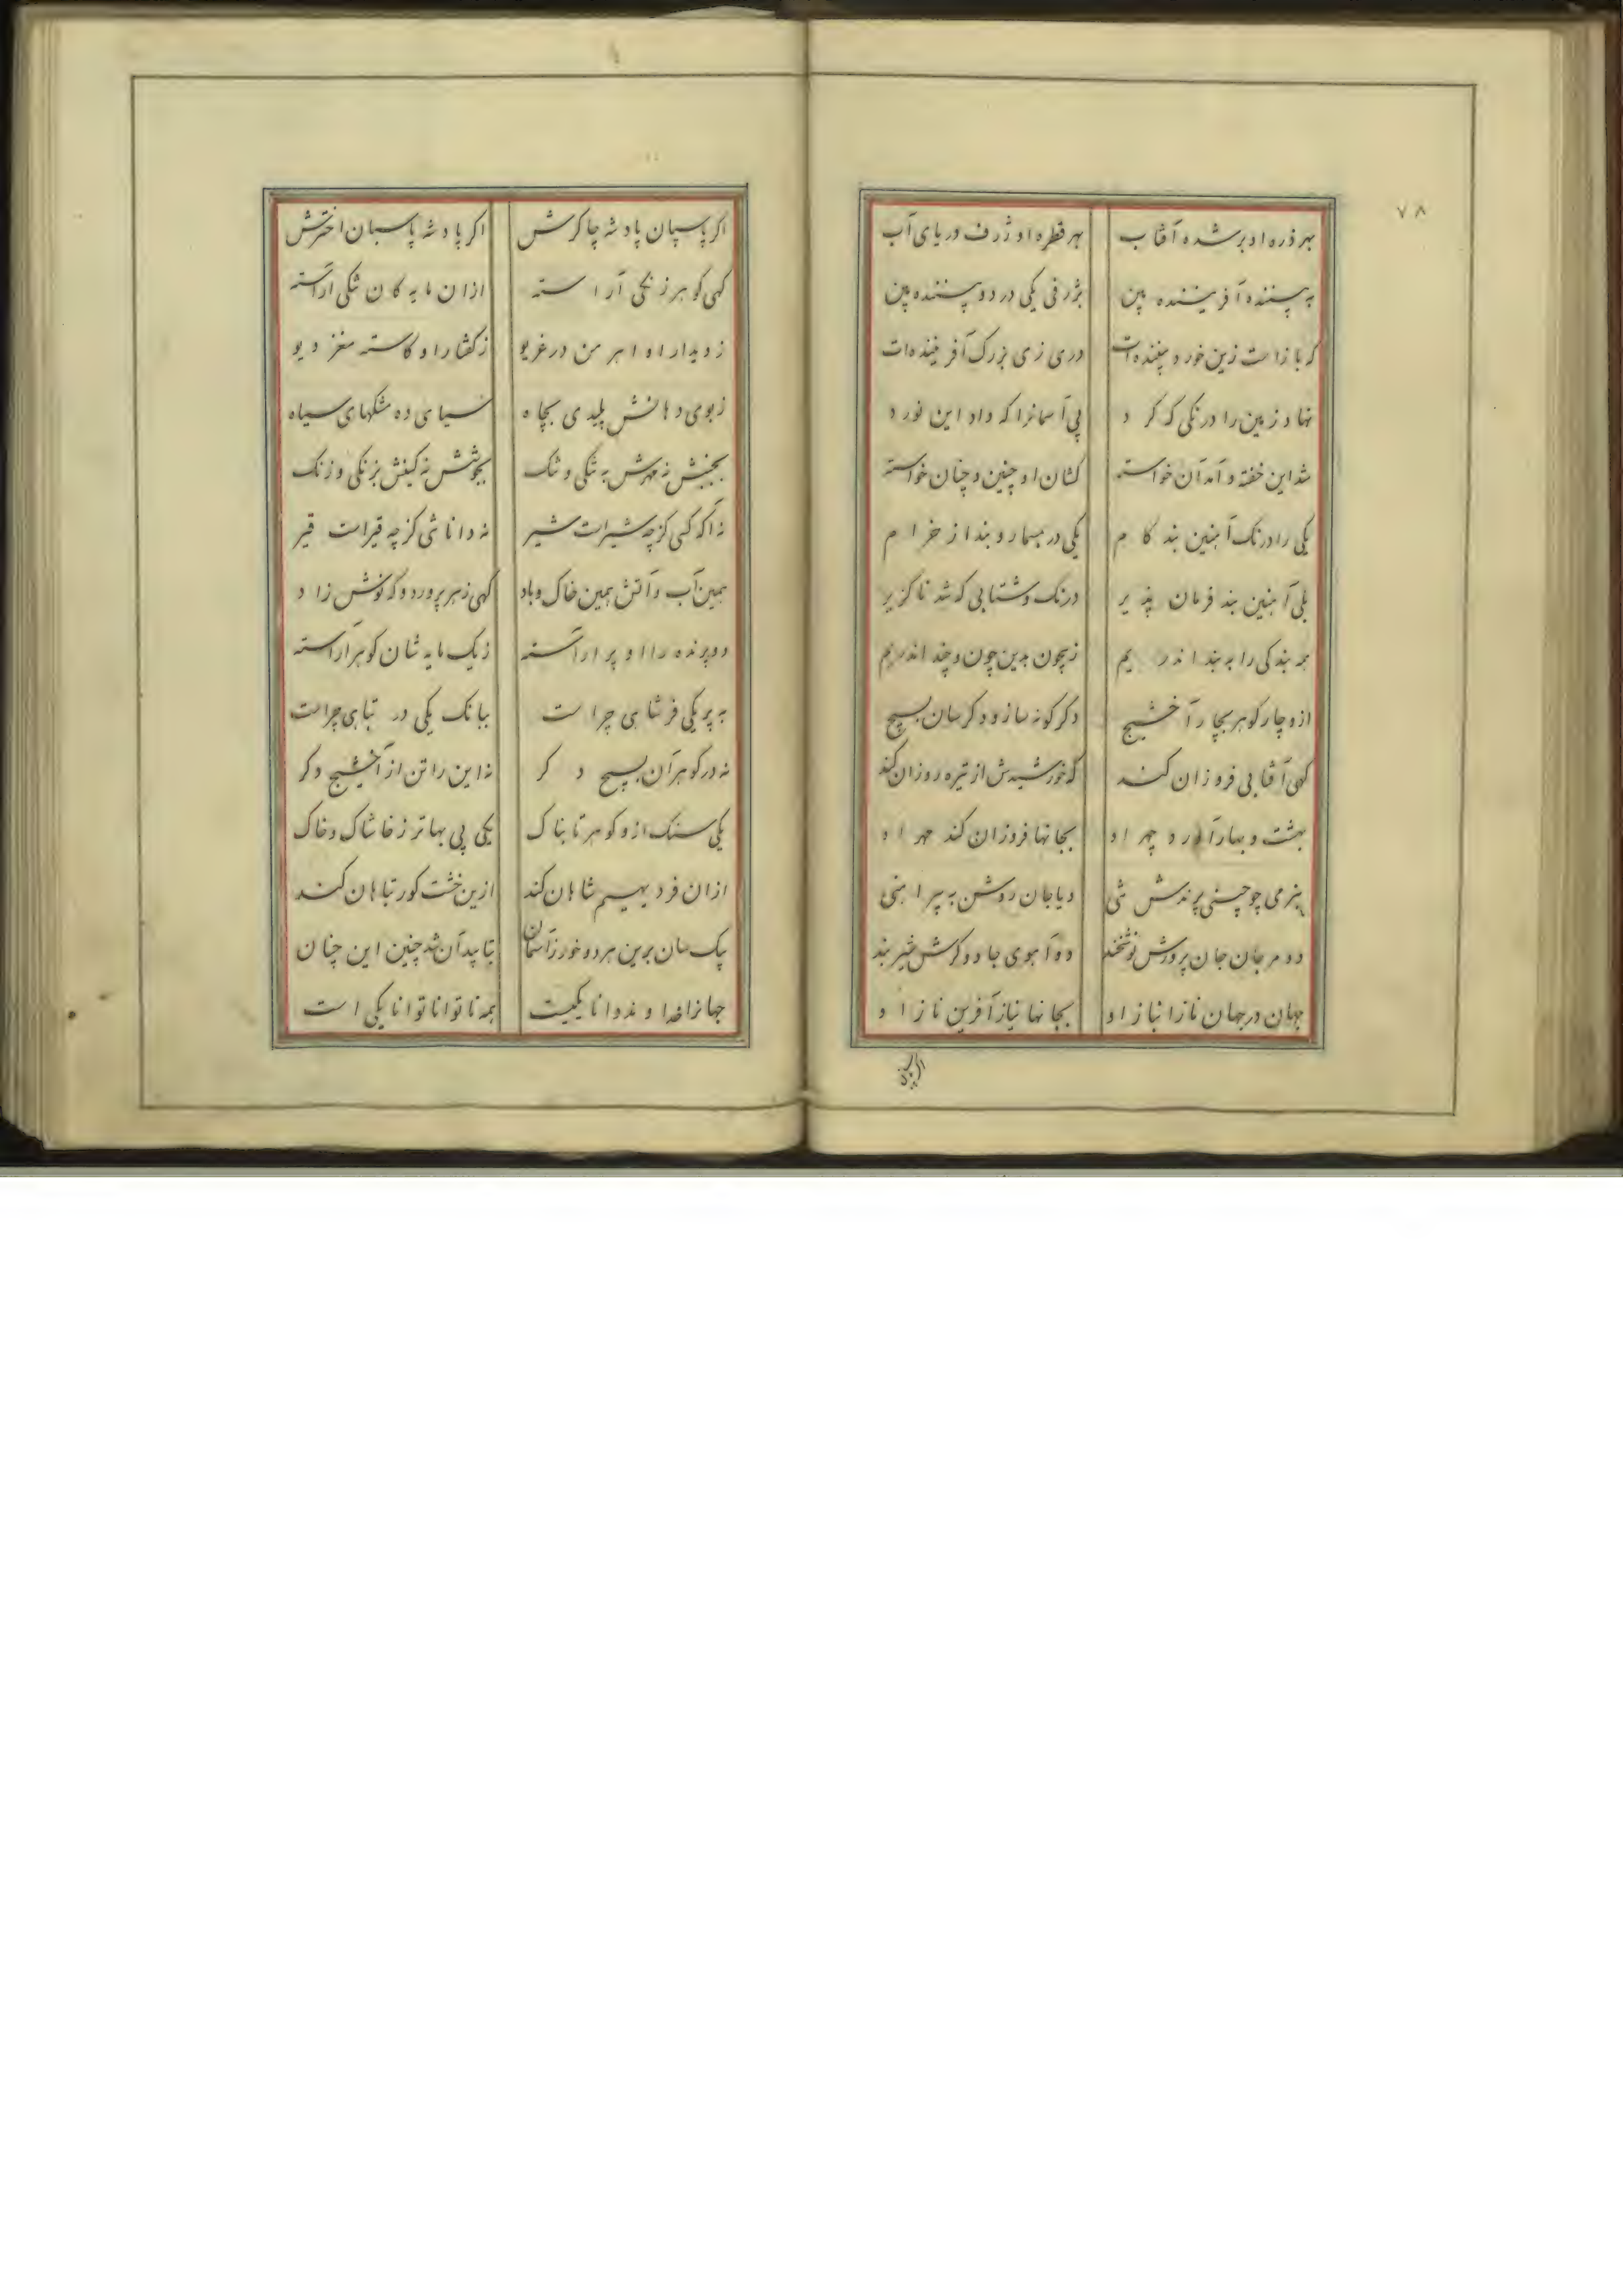 ۷۸
بهر ذره او بر شده آفتاب بهر قطره او ژرف دریای آب
به بیننده آفریننده بین بژرفی یکی در دو بیننده بین
که بازاست زین خورد بیننده‌ات دری زی بزرک آفریننده‌ات
نهاد زمین را درنکی که کرد پی آسمانرا که داد این نورد
شد این خفته و آمد آن خواسته کشان او چنین و چنان خواسته
یکی را درنک آهنین بند کام یکی در بسمار و بند از خرام
بلی آهنین بند فرمان پذیر درنک و شتابی که شد ناکزیر
هر بندکی را به بند اندریم ز بیچون بدین چون و چند اندریم
ازو چار کوهر بچار آخشیج دکر کونه ساز و دکر سان بسیج
کهی آفتابی فروزان کند که خورشیدش از تیره روزان کند
بهشت و بهار آور و چهر او بجانها فروزان کند مهر او
بنرمی چو چینی پرندش تنی و یا جان روشن به پیراهنی
دو مرجان جان پرورش نوشخند دو آهوی جادوکرش شیر بند
جهان در جهان نازا نیاز او بجانها نیاز آفرین ناز او
اکر پاسپان پادشه چاکرش اکر پادشه پاسبان اخترش
کهی کوهر زنکی آراسته ازان مایه کان تنکی آراسته
ز دیدار او اهرمن در غریو ز کفتار او کاسته مغز دیو
ز بوی دهانش پلیدی بچاه سیاهی ده مشکهای سیاه
بجنبش نه مهرش به تنکی و تنک بجوشش نه کینش بزنکی و زنک
نه آکه کسی کز چه شیرات شیر نه داناشی کز چه قیرات قیر
همین آب و آتش همین خاک و باد کهی زهر پرورد و که نوش زاد
دو پرنده را او پر آراسته ز یک مایه شان کوهر آراسته
به پر یکی فر شاهی چراست ببانک یکی در تباهی چراست
نه در کوهر آن بسیج دکر نه این را تن از آخشیج دکر
یکی سنک ازو کوهر تابناک یکی پی بهاتر ز خاشاک و خاک
ازان فر دیهیم شاهان کند ازین خشت کور تباهان کند
یک سان برین هر دو خور ز آسمان بتابید آن شد چنین این چنان
جهانرا خدا وند دانا یکیست همه ناتوانا توانا یکی است